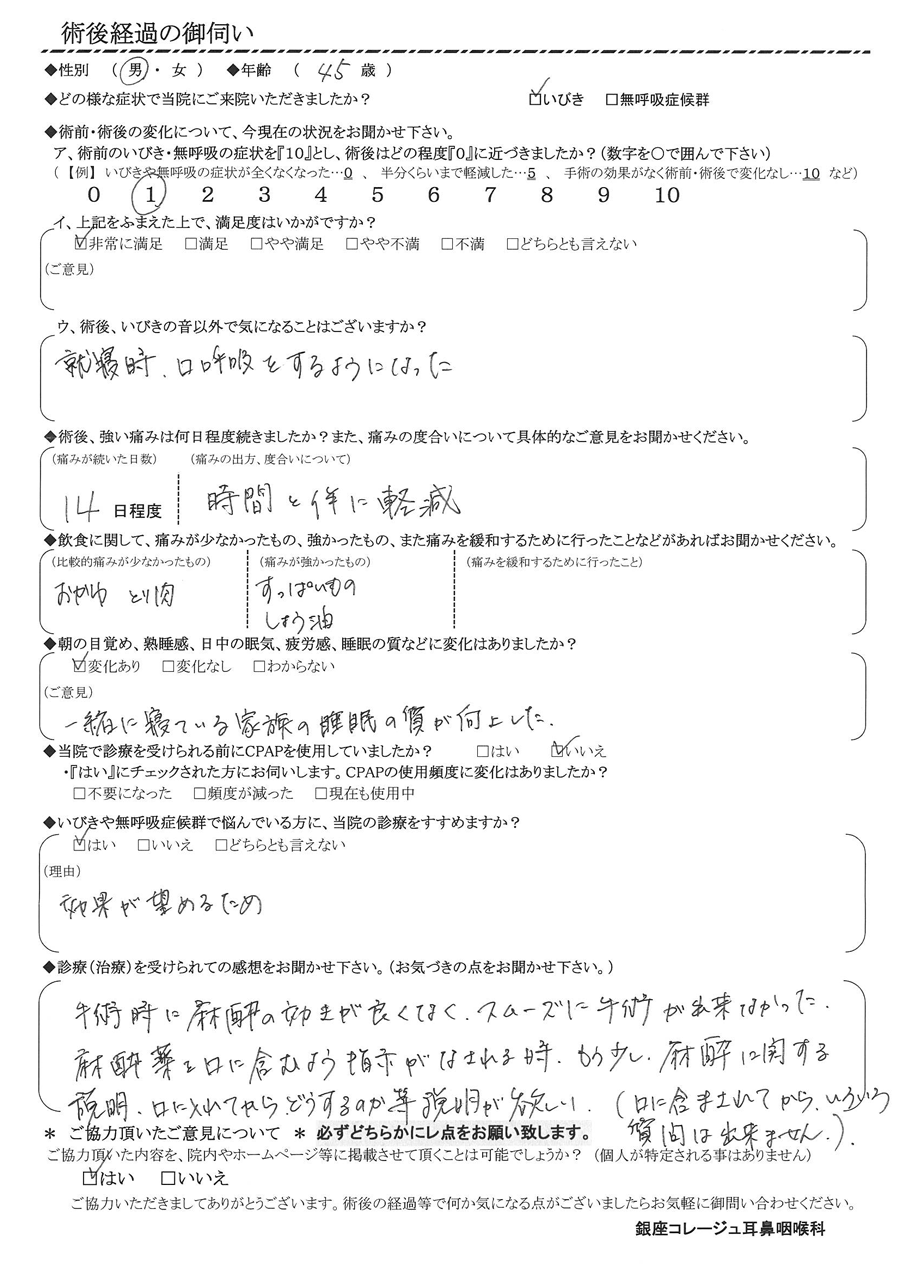 術後経過の御伺い
◆性別 ( 男 ・ 女 ) ◆年齢 ( 45 歳 )
◆どの様な症状で当院にご来院いただきましたか? ☑いびき □無呼吸症候群
◆術前・術後の変化について、今現在の状況をお聞かせ下さい。
ア、術前のいびき・無呼吸の症状を『10』とし、術後はどの程度『0』に近づきましたか?(数字を〇で囲んで下さい)
(【例】 いびきや無呼吸の症状が全くなくなった…0 、 半分くらいまで軽減した…5 、 手術の効果がなく術前・術後で変化なし…10 など)
0 1 2 3 4 5 6 7 8 9 10
イ、上記をふまえた上で、満足度はいかがですか?
☑非常に満足 □満足 □やや満足 □やや不満 □不満 □どちらとも言えない
(ご意見)
ウ、術後、いびきの音以外で気になることはございますか?
就寝時、口呼吸をするようになった
◆術後、強い痛みは何日程度続きましたか?また、痛みの度合いについて具体的なご意見をお聞かせください。
(痛みが続いた日数) (痛みの出方、度合いについて)
14 日程度 時間と伴に軽減
◆飲食に関して、痛みが少なかったもの、強かったもの、また痛みを緩和するために行ったことなどがあればお聞かせください。
(比較的痛みが少なかったもの) (痛みが強かったもの) (痛みを緩和するために行ったこと)
おかゆ とり肉 すっぱいもの
しょう油
◆朝の目覚め、熟睡感、日中の眠気、疲労感、睡眠の質などに変化はありましたか?
☑変化あり □変化なし □わからない
(ご意見)
一緒に寝ている家族の睡眠の質が向上した.
◆当院で診療を受けられる前にCPAPを使用していましたか? □はい ☑いいえ
・『はい』にチェックされた方にお伺いします。CPAPの使用頻度に変化はありましたか?
□不要になった □頻度が減った □現在も使用中
◆いびきや無呼吸症候群で悩んでいる方に、当院の診療をすすめますか?
☑はい □いいえ □どちらとも言えない
(理由)
効果が望めるため
◆診療(治療)を受けられての感想をお聞かせ下さい。(お気づきの点をお聞かせ下さい。)
手術時に麻酔の効きが良くなく、スムーズに手術が出来なかった.
麻酔薬を口に含むよう指示がなされる時、もう少し、麻酔に関する
説明、口に入れてからどうするのか等説明が欲しい. (口に含まされてから、いろいろ
質問は出来ません.).
* ご協力頂いたご意見について * 必ずどちらかにレ点をお願い致します。
ご協力頂いた内容を、院内やホームページ等に掲載させて頂くことは可能でしょうか? (個人が特定される事はありません)
☑はい □いいえ
ご協力いただきましてありがとうございます。術後の経過等で何か気になる点がございましたらお気軽に御問い合わせください。
銀座コレージュ耳鼻咽喉科